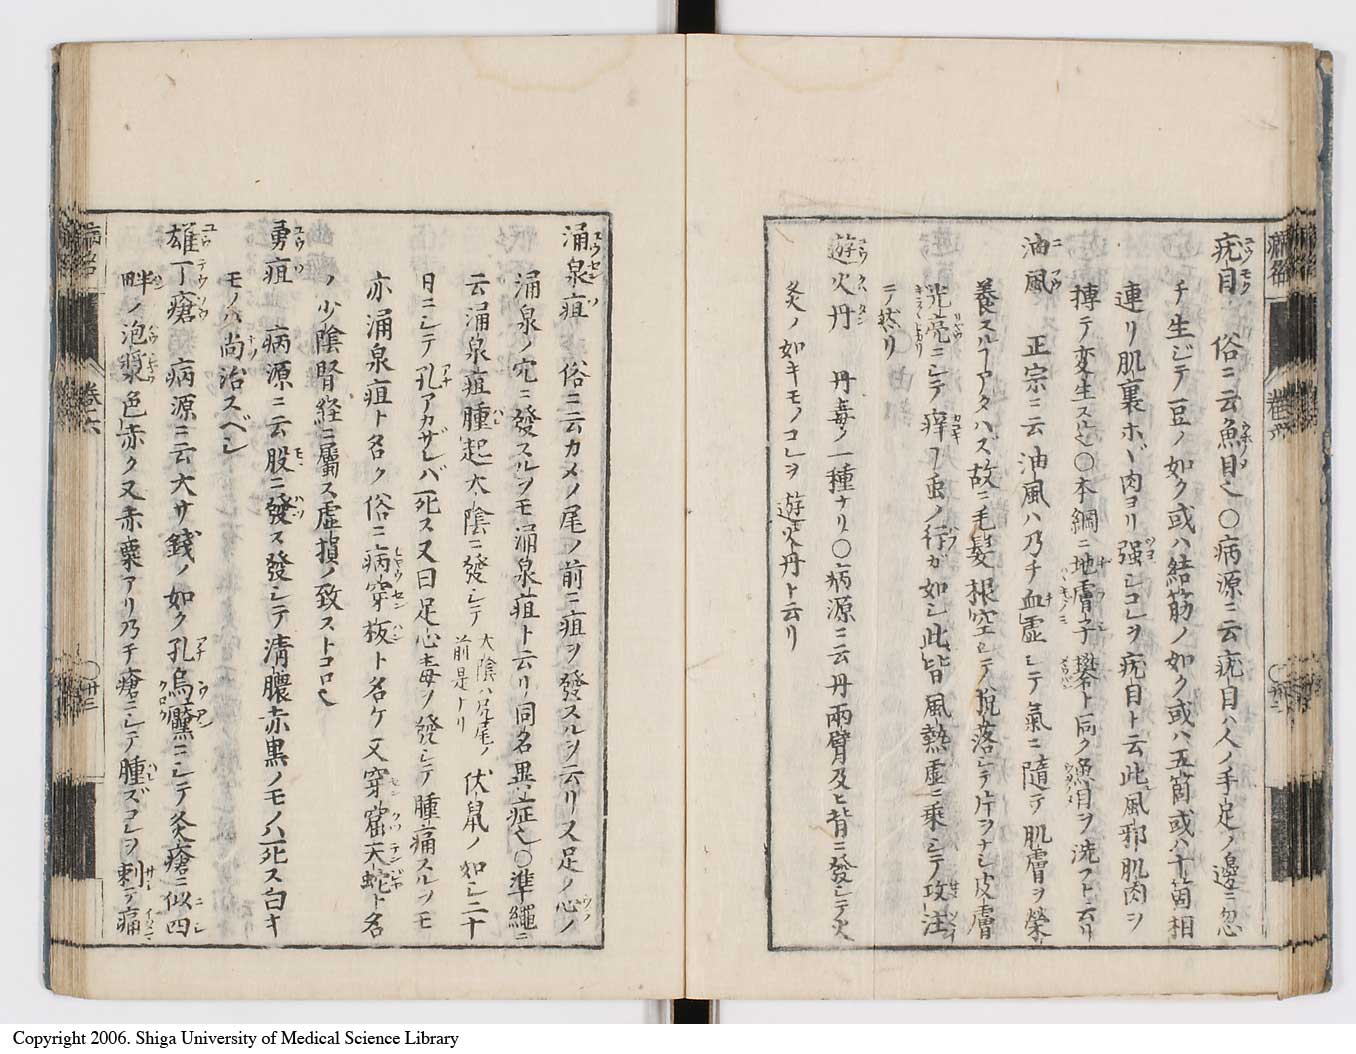 疣目 俗ニ云魚目也〇病源ニ云疣目ハ人ノ手足ノ邊ニ忽
チ生シテ豆ノ如ク或ハ結筋ノ如ク或ハ五箇或ハ十箇相
連リ肌裏ホド肉ヨリ强シコレヲ疣目ト云此風邪肌肉ヲ
搏テ変生スル也〇本綱ニ地膚子礬ト同ク魚目ヲ洗フト云リ
油風 正宗ニ云油風ハ乃チ血虚シテ氣ニ隨テ肌膚ヲ榮
養スルヿアタハス故ニ毛髮根空シテ脫落シテ片ヲナシ皮膚
光亮ニシテ痒ヿ虫ノ行ガ如シ此皆風熱虚ニ乗シテ攻注
テ然リ
遊火丹 丹毒ノ一種ナリ〇病源ニ云丹兩臂及ヒ背ニ發シテ火
灸ノ如キモノコレヲ遊火丹ト云リ
涌泉疽 俗ニ云カメノ尾ノ前ニ疽ヲ發スルヲ云リ又足ノ心ノ
涌泉ノ穴ニ發スルヲモ涌泉疽ト云リ同名異症也〇準繩ニ
云涌泉疽腫起大陰ニ發シテ 大陰ハ尻尾ノ前是トリ 伏鼠ノ如シ二十
日ニシテ孔アカザレバ死ス又曰足心毒ヲ發シテ腫痛スルヲモ
亦涌泉疽ト名ク俗ニ病穿板ト名ケ又穿窟天蛇ト名
ノ少陰腎経ニ屬ス虚損ノ致ストコロ也
勇疽 病源ニ云股ニ發ス發シテ清膿赤黒ノモノハ死ス白キ
モノハ尚治スベシ
雄丁瘡 病源ニ云大サ錢ノ如ク孔烏黶ニシテ灸瘡ニ似四
畔ノ泡漿色赤ク又赤粟アリ乃チ瘡ニシテ腫ズコレヲ刺テ痛
病名
卷六
〇廿三
Copyright 2006. Shiga University of Medical Science Library